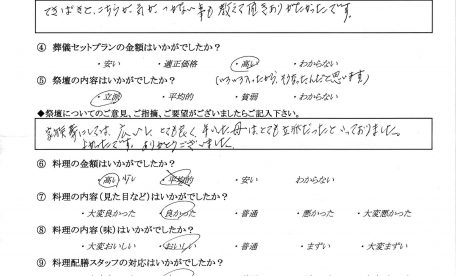 てきぱきと、こちらが気がつかない事も教えて頂きありがたかったです。
④ 葬儀セットプランの金額はいかがでしたか？
・安い ・適正価格 ・高い ・わからない
⑤ 祭壇の内容はいかがでしたか？
・立派 ・平均的 ・貧弱 ・わからない
◆祭壇についてのご意見、ご指摘、ご要望がございましたらご記入下さい。
家族葬にしては、広いし、とても良く
よかったです。ありがとうございました。
⑥ 料理の金額はいかがでしたか？
・高い 少し ・平均的 ・安い わからない
⑦ 料理の内容（見た目など）はいかがでしたか？
・大変良かった ・良かった ・普通 ・悪かった ・大変悪かった
⑧ 料理の内容（味）はいかがでしたか？
・大変おいしい ・おいしい ・普通 ・まずい ・大変まずい
⑨ 料理配膳スタッフの対応はいかがでしたか？